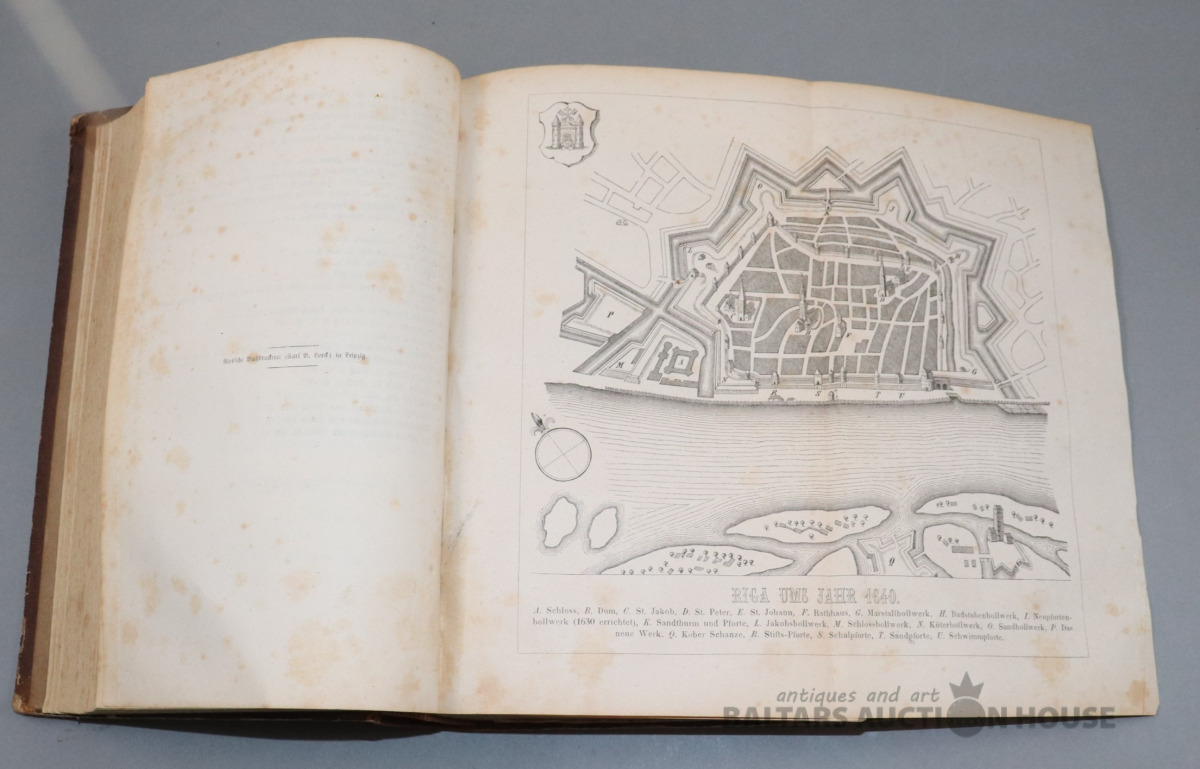 in Leipzig.
RIGA UMS JAHR 1640.
A. Schloss, B. Dom, C. St. Jakob, D. St. Peter, E. St. Johann, F. Rathhaus, G. Marstallbollwerk, H. Badstubenbollwerk, I. Neupforten-
bollwerk (1630 errichtet), K. Sandthurm und Pforte, L. Jakobsbollwerk, M. Schlossbollwerk, N. Küterbollwerk, O. Sandbollwerk, P. Das
neue Werk. Q. Kober Schanze, R. Stifts-Pforte, S. Schalpforte, T. Sandpforte, U. Schwimmpforte.
P
M
O
G
S T U
Q
antiques and art
BALTARS AUCTION HOUSE